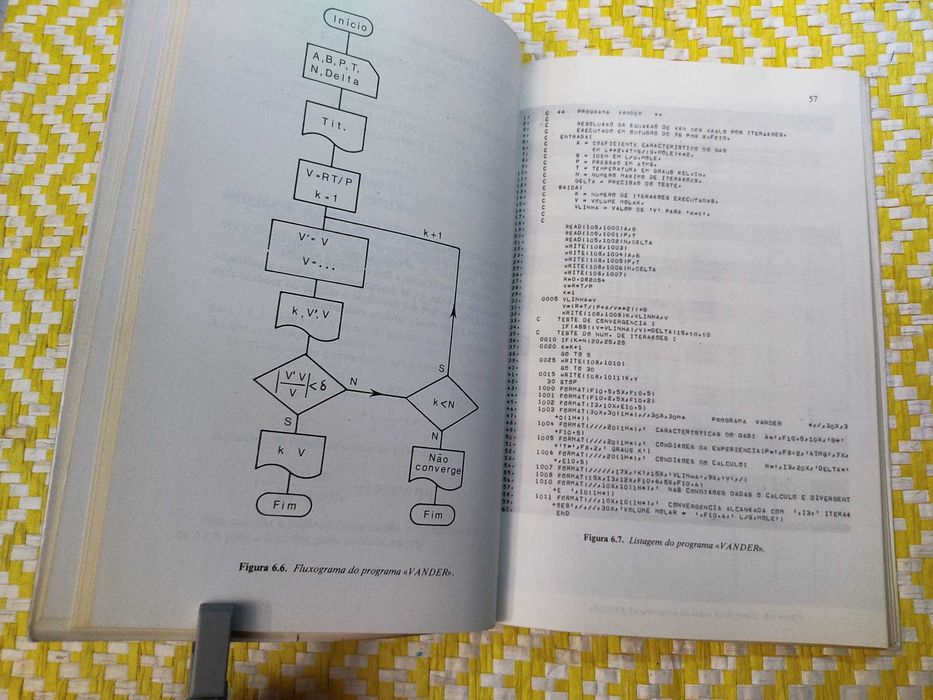 Início
A,B,P,T,
N,Delta
Tit.
V=RT/P
k=1
k+1
V'= V
V=...
k,V',V
|V'V/V|<δ
N
S
S
k<N
N
k V
Não
converge
Fim
Fim
Figura 6.6. Fluxograma do programa «VANDER».
57
C ** PROGRAMA VANDER **
C
C RESOLUSAO DA EQUASAO DE VAN DER VAALS POR ITERASOES.
C EXECUTADO EM OUTUBRO DE 76 POR
C ENTRADA:
C A = COEFICIENTE CARACTERISTICO DO GAS
C EM L**2*ATMS/(G.MOLE)**2.
C B = IDEM EM L/G.MOLE.
C P = PRESSAO EM ATMS.
C T = TEMPERATURA EM GRAUS KELVIN.
C N = NUMERO MAXIMO DE ITERASOES.
C DELTA = PRECISAO DO TESTE.
C SAIDA:
C K = NUMERO DE ITERASOES EXECUTADAS.
C V = VOLUME MOLAR.
C VLINHA = VALOR DE 'V' PARA 'K=1'.
C
READ(105,1000)A,B
READ(105,1001)P,T
READ(105,1002)N,DELTA
WRITE(108,1003)
WRITE(108,1004)A,B
WRITE(108,1005)P,T
WRITE(108,1006)N,DELTA
WRITE(108,1007)
R=0.08205
V=R*T/P
K=1
0005 VLINHA=V
V=(R*T/(P+A/V**2))+B
WRITE(108,1008)K,VLINHA,V
C TESTE DE CONVERGENCIA :
IF(ABS((V-VLINHA)/V)-DELTA)15,10,10
C TESTE DO NUM. DE ITERASOES :
0010 IF(K-N)20,25,25
0020 K=K+1
GO TO 5
0025 WRITE(108,1010)
GO TO 30
0015 WRITE(108,1011)K,V
30 STOP
1000 FORMAT(F10.5,5X,F10.5)
1001 FORMAT(F10.2,5X,F10.2)
1002 FORMAT(I3,10X,E10.5)
1003 FORMAT(30X,30(1H*),//30X,30H* PROGRAMA VANDER *,/,30X,3
*0(1H*))
1004 FORMAT(////,20(1H*),' CARACTERISTICAS DO GAS: A=',F10.5,10X,'B='
*,F10.5)
1005 FORMAT(////,20(1H*),' CONDISOES DA EXPERIENCIA:P=',F8.2,'ATMS',7X,
*'T=',F8.2,' GRAUS K')
1006 FORMAT(////,20(1H*),' CONDISOES DO CALCULO: N=',I3,20X,'DELTA='
*,E10.5)
1007 FORMAT(/////,17X,'K',15X,'VLINHA',9X,'V',/)
1008 FORMAT(15X,I3,12X,F10.6,5X,F10.6)
1010 FORMAT(//,10X,10(1H*),' NAS CONDISOES DADAS O CALCULO E DIVERGENT
*E ',10(1H*))
1011 FORMAT(////,10X,10(1H*),' CONVERGENCIA ALCANSADA COM ',I3,' ITERAS
*OES',/////,30X,'VOLUME MOLAR = ',F10.6,' L/G.MOLE')
END
Figura 6.7. Listagem do programa «VANDER».